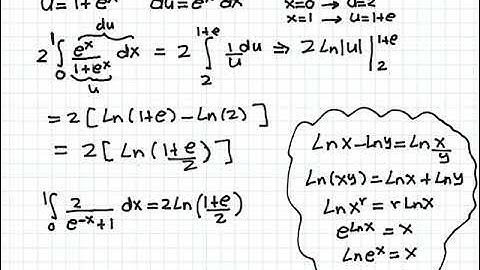 u=1+e^x   du=e^x dx   x=0 → u=2
x=1 → u=1+e
2 ∫₀¹ e^x/(1+e^x) dx = 2 ∫₂^(1+e) 1/u du ⇒ 2 Ln|u| |₂^(1+e)
du
u
= 2 [ Ln(1+e) - Ln(2) ]
= 2 [ Ln ((1+e)/2) ]
∫₀¹ 2/(e^(-x)+1) dx = 2 Ln((1+e)/2)
Ln x - Ln y = Ln x/y
Ln(xy) = Ln x + Ln y
Ln x^r = r Ln x
e^(Ln x) = x
Ln e^x = x